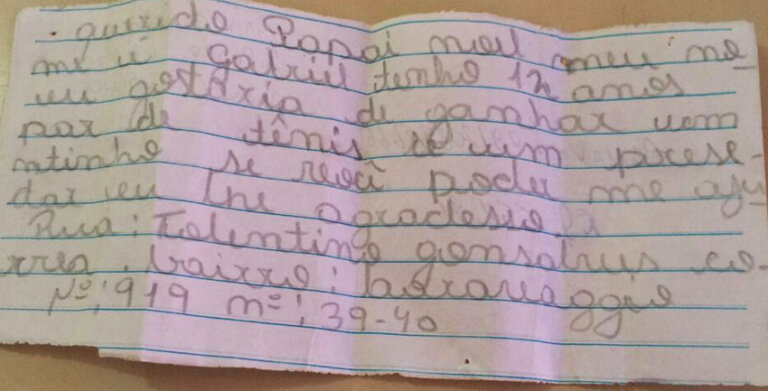 querido Papai noel meu no
me e Gabriel tenho 12 anos
eu gostaria de ganhar uem
par de tênis e uim prese-
ntinho se você poder me aju
dar eu lhe agradesso
Rua: Tolentino gonsalves co-
rrea, bairro: Caravaggio
Nº: 919 nº: 39-40